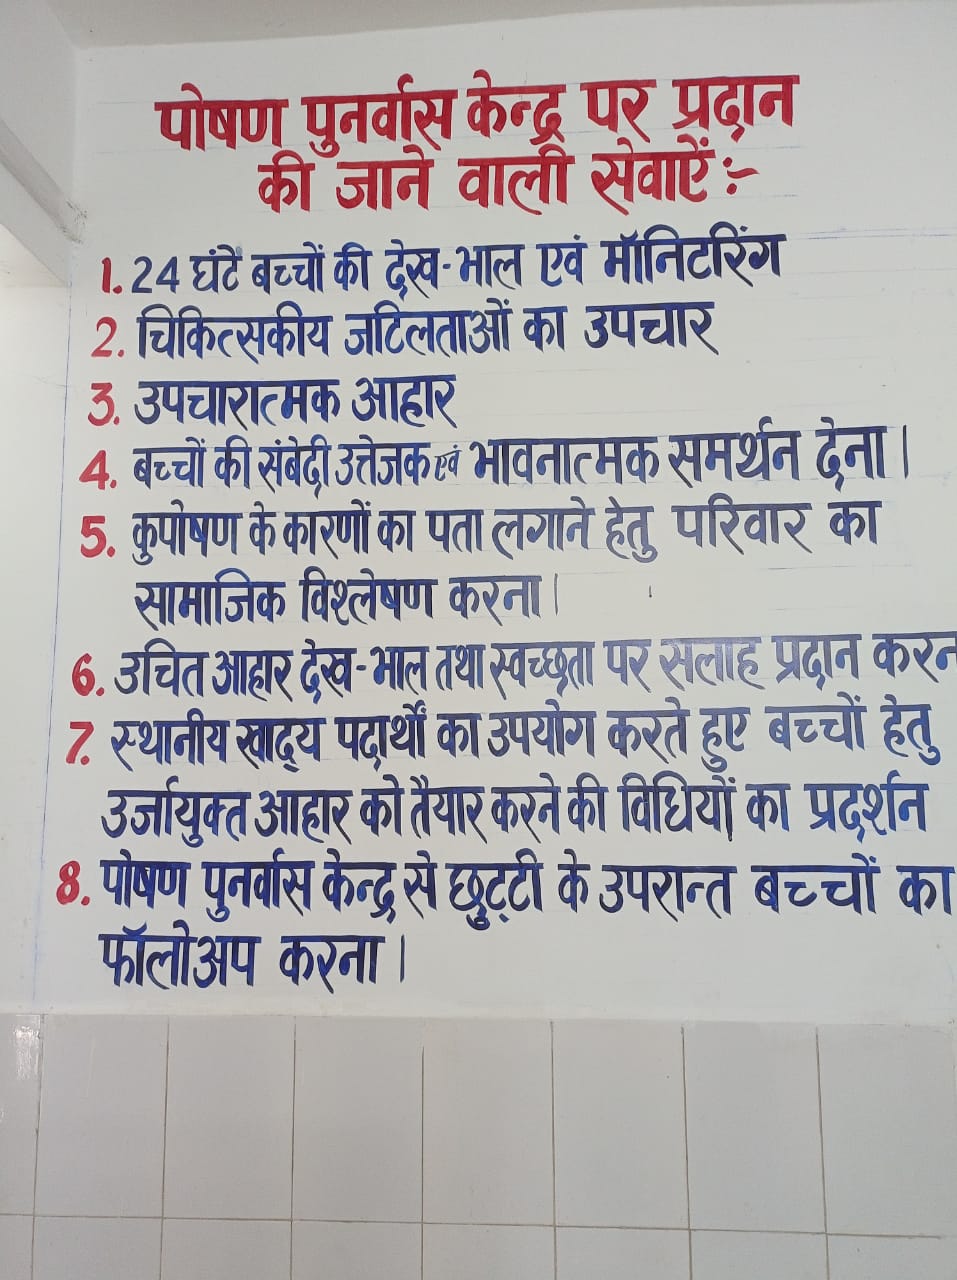 पोषण पुनर्वास केन्द्र पर प्रदान
की जाने वाली सेवाऐं :-
1. 24 घंटे बच्चों की देख-भाल एवं मॉनिटरिंग
2. चिकित्सकीय जटिलताओं का उपचार
3. उपचारात्मक आहार
4. बच्चों की संबेदी उत्तेजक एवं भावनात्मक समर्थन देना।
5. कुपोषण के कारणों का पता लगाने हेतु परिवार का
सामाजिक विश्लेषण करना।
6. उचित आहार देख-भाल तथा स्वच्छता पर सलाह प्रदान करन
7. स्थानीय खाद्य पदार्थों का उपयोग करते हुए बच्चों हेतु
उर्जायुक्त आहार को तैयार करने की विधियों का प्रदर्शन
8. पोषण पुनर्वास केन्द्र से छुट्टी के उपरान्त बच्चों का
फॉलोअप करना।